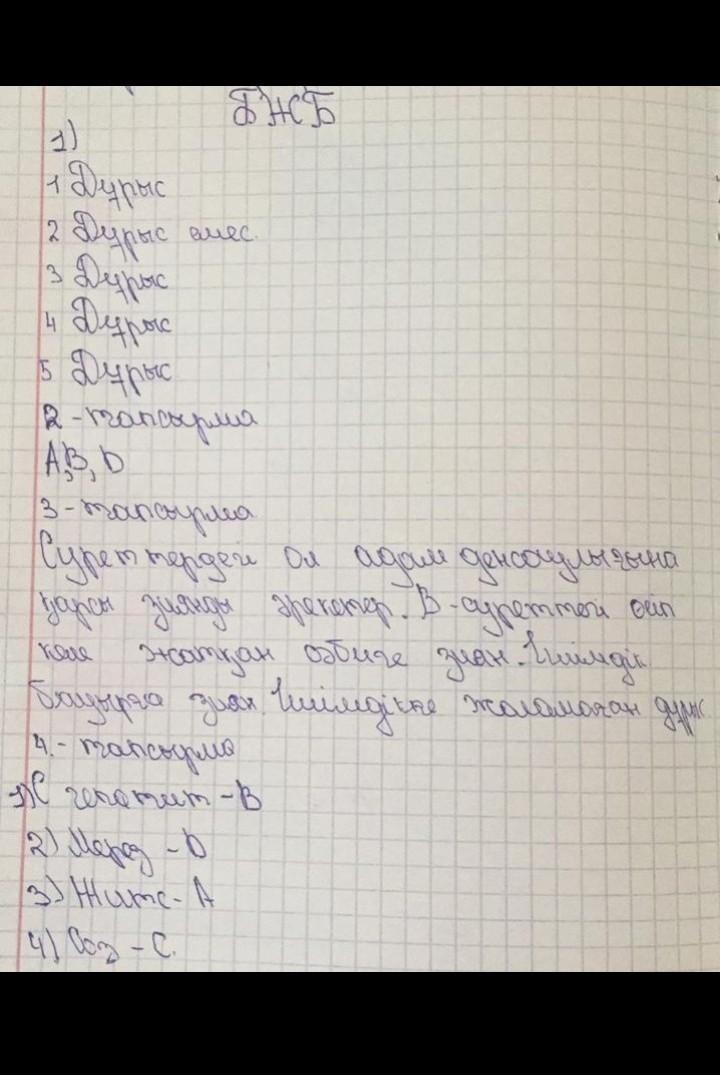 БЖСБ
1)
1 Дұрыс
2 Дұрыс емес.
3 Дұрыс
4 Дұрыс
5 Дұрыс
2-тапсырма
А,В,D
3-тапсырма
Суреттердегі ол адам денсаулығына
қарсы зиянды әрекетер. В-суреттегі
келе жатқан әпкеге зиян. Ішімдік
бауырға зиян. Ішімдікке жоламаған дұрыс
4.-тапсырма
1)С гепатит-В
2) Мерез-D
3) ЖИТС-А
4) Соз-С.